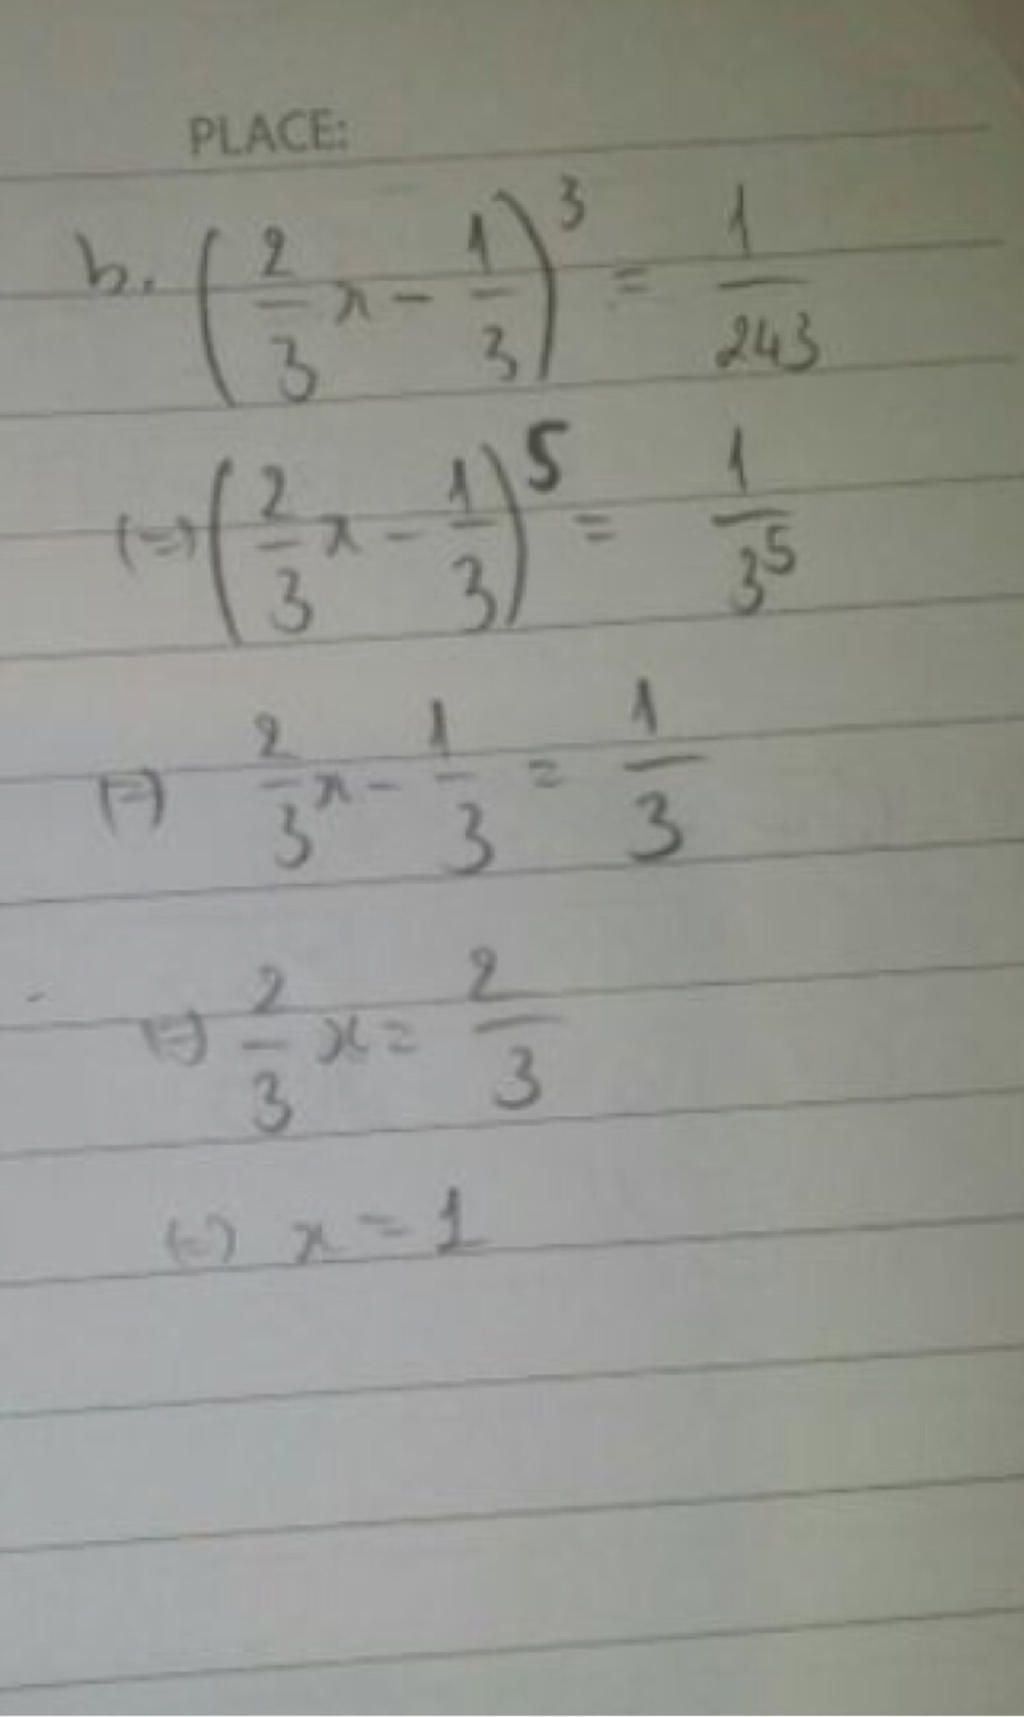 PLACE:
b. (2/3 x - 1/3)^3 = 1/243
(=) (2/3 x - 1/3)^5 = 1/3^5
(=) 2/3 x - 1/3 = 1/3
(=) 2/3 x = 2/3
(=) x = 1